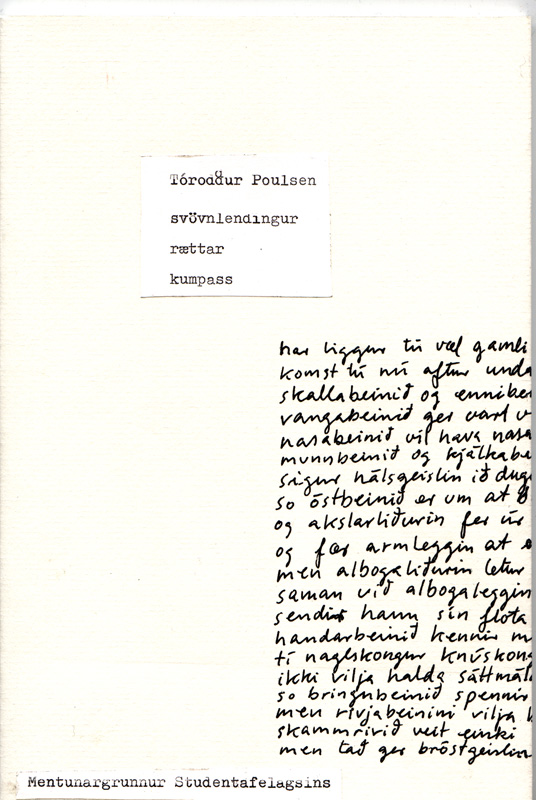 Tóroddur Poulsen
svøvnlendingur
rættar
kumpass
har liggur tú væl gamli
komst tú nú aftur unda
skallabeinið og enniber
vangabeinið ger vart v
nasabeinið vil hava nasa
munnbeinið og kjálkabe
sigur hálsgeislin ið dug
so óstbeinið er um at
og akslarliðurin fer úr
og fær armleggin at
men albogaliðurin letur
saman við albogaleggin
sendir hann sín flota
handarbeinið kennir m
tí naglskongur knúskong
ikki vilja halda sáttmál
so bringubeinið spennir
men rivjabeinini vilja
skammrivið veit einki
men tað ger bróstgeislin
Mentunargrunnur Studentafelagsins